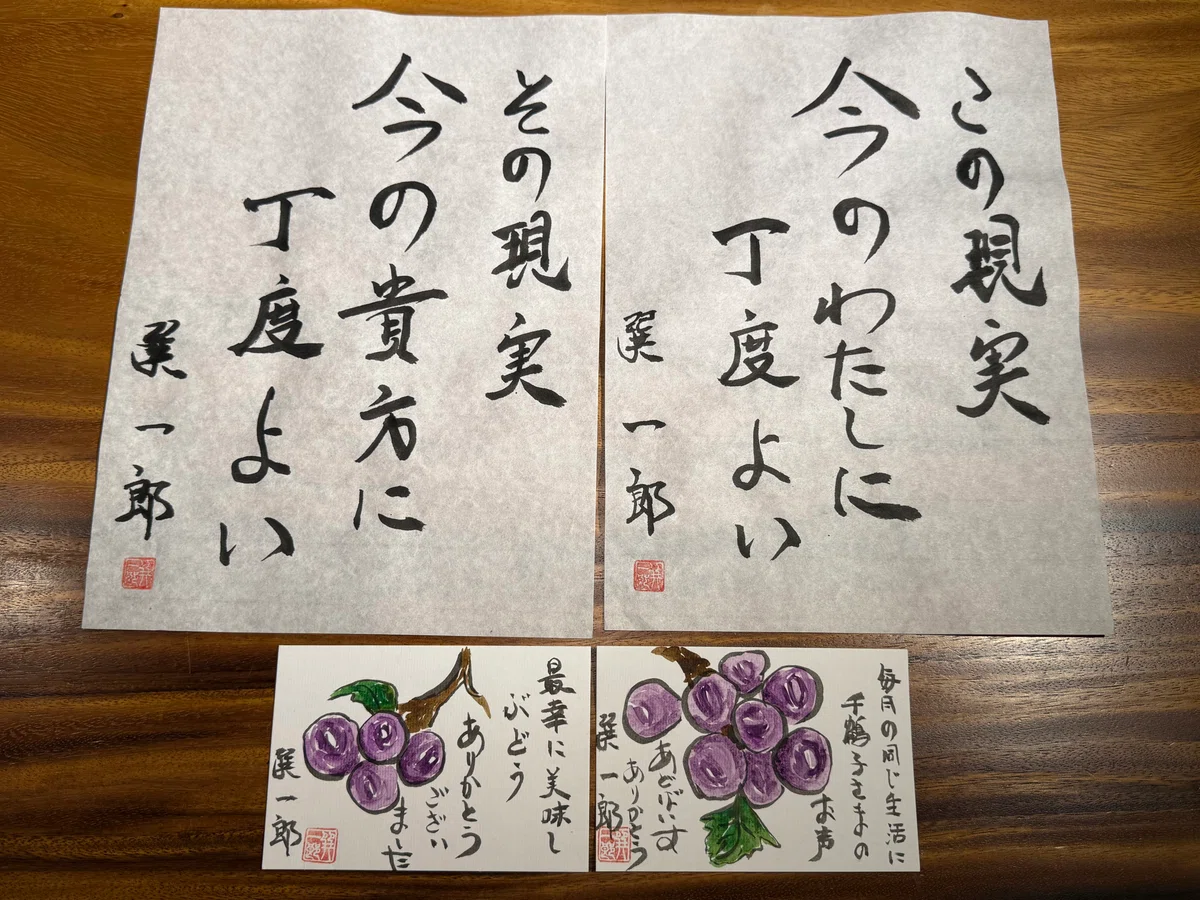 この現実
今のわたしに
丁度よい
選一郎
その現実
今の貴方に
丁度よい
選一郎
毎月の同じ生活に
千鶴子さまの
お声
ありがとう
選一郎
最幸に美味し
ぶどう
ありがとう
ござい
ました
選一郎